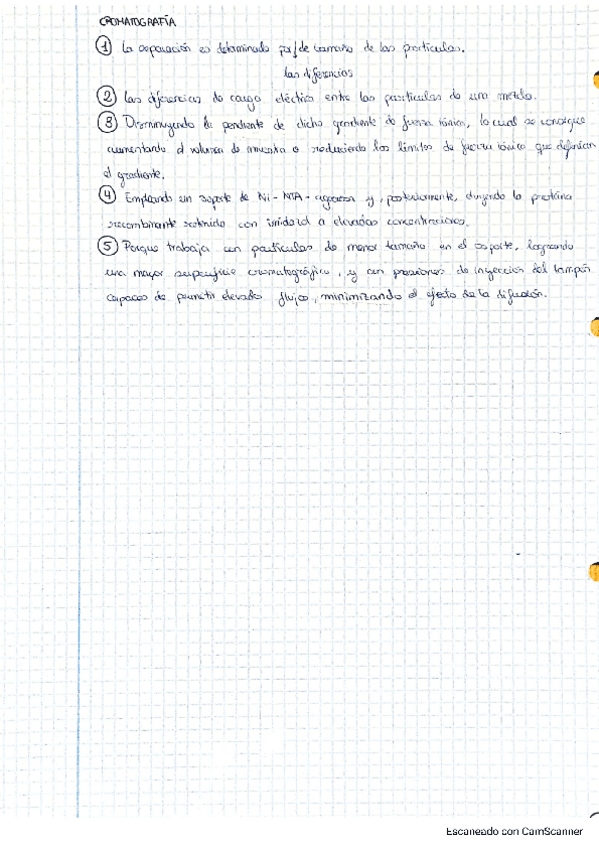 CROMATOGRAFÍA
① La separación es determinada por/de tamaño de las partículas.
las diferencias
② Las diferencias de carga eléctrica entre las partículas de una mezcla.
③ Disminuyendo la pendiente de dicho gradiente de fuerza iónica, lo cual se consigue
aumentando el volumen de muestra o reduciendo los límites de fuerza iónica que definían
el gradiente.
④ Empleando un soporte de Ni-NTA-agarosa y, posteriormente, eluyendo la proteína
recombinante retenida con imidazol a elevadas concentraciones.
⑤ Porque trabaja con partículas de menor tamaño en el soporte, logrando
una mayor superficie cromatográfica, y con presiones de inyección del tampón
capaces de permitir elevado flujos, minimizando el efecto de la difusión.
Escaneado con CamScanner